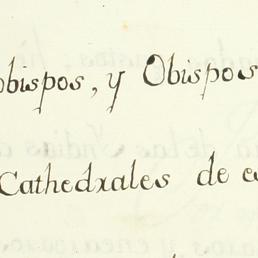 obispos, y Obispos
Cathedrales de e